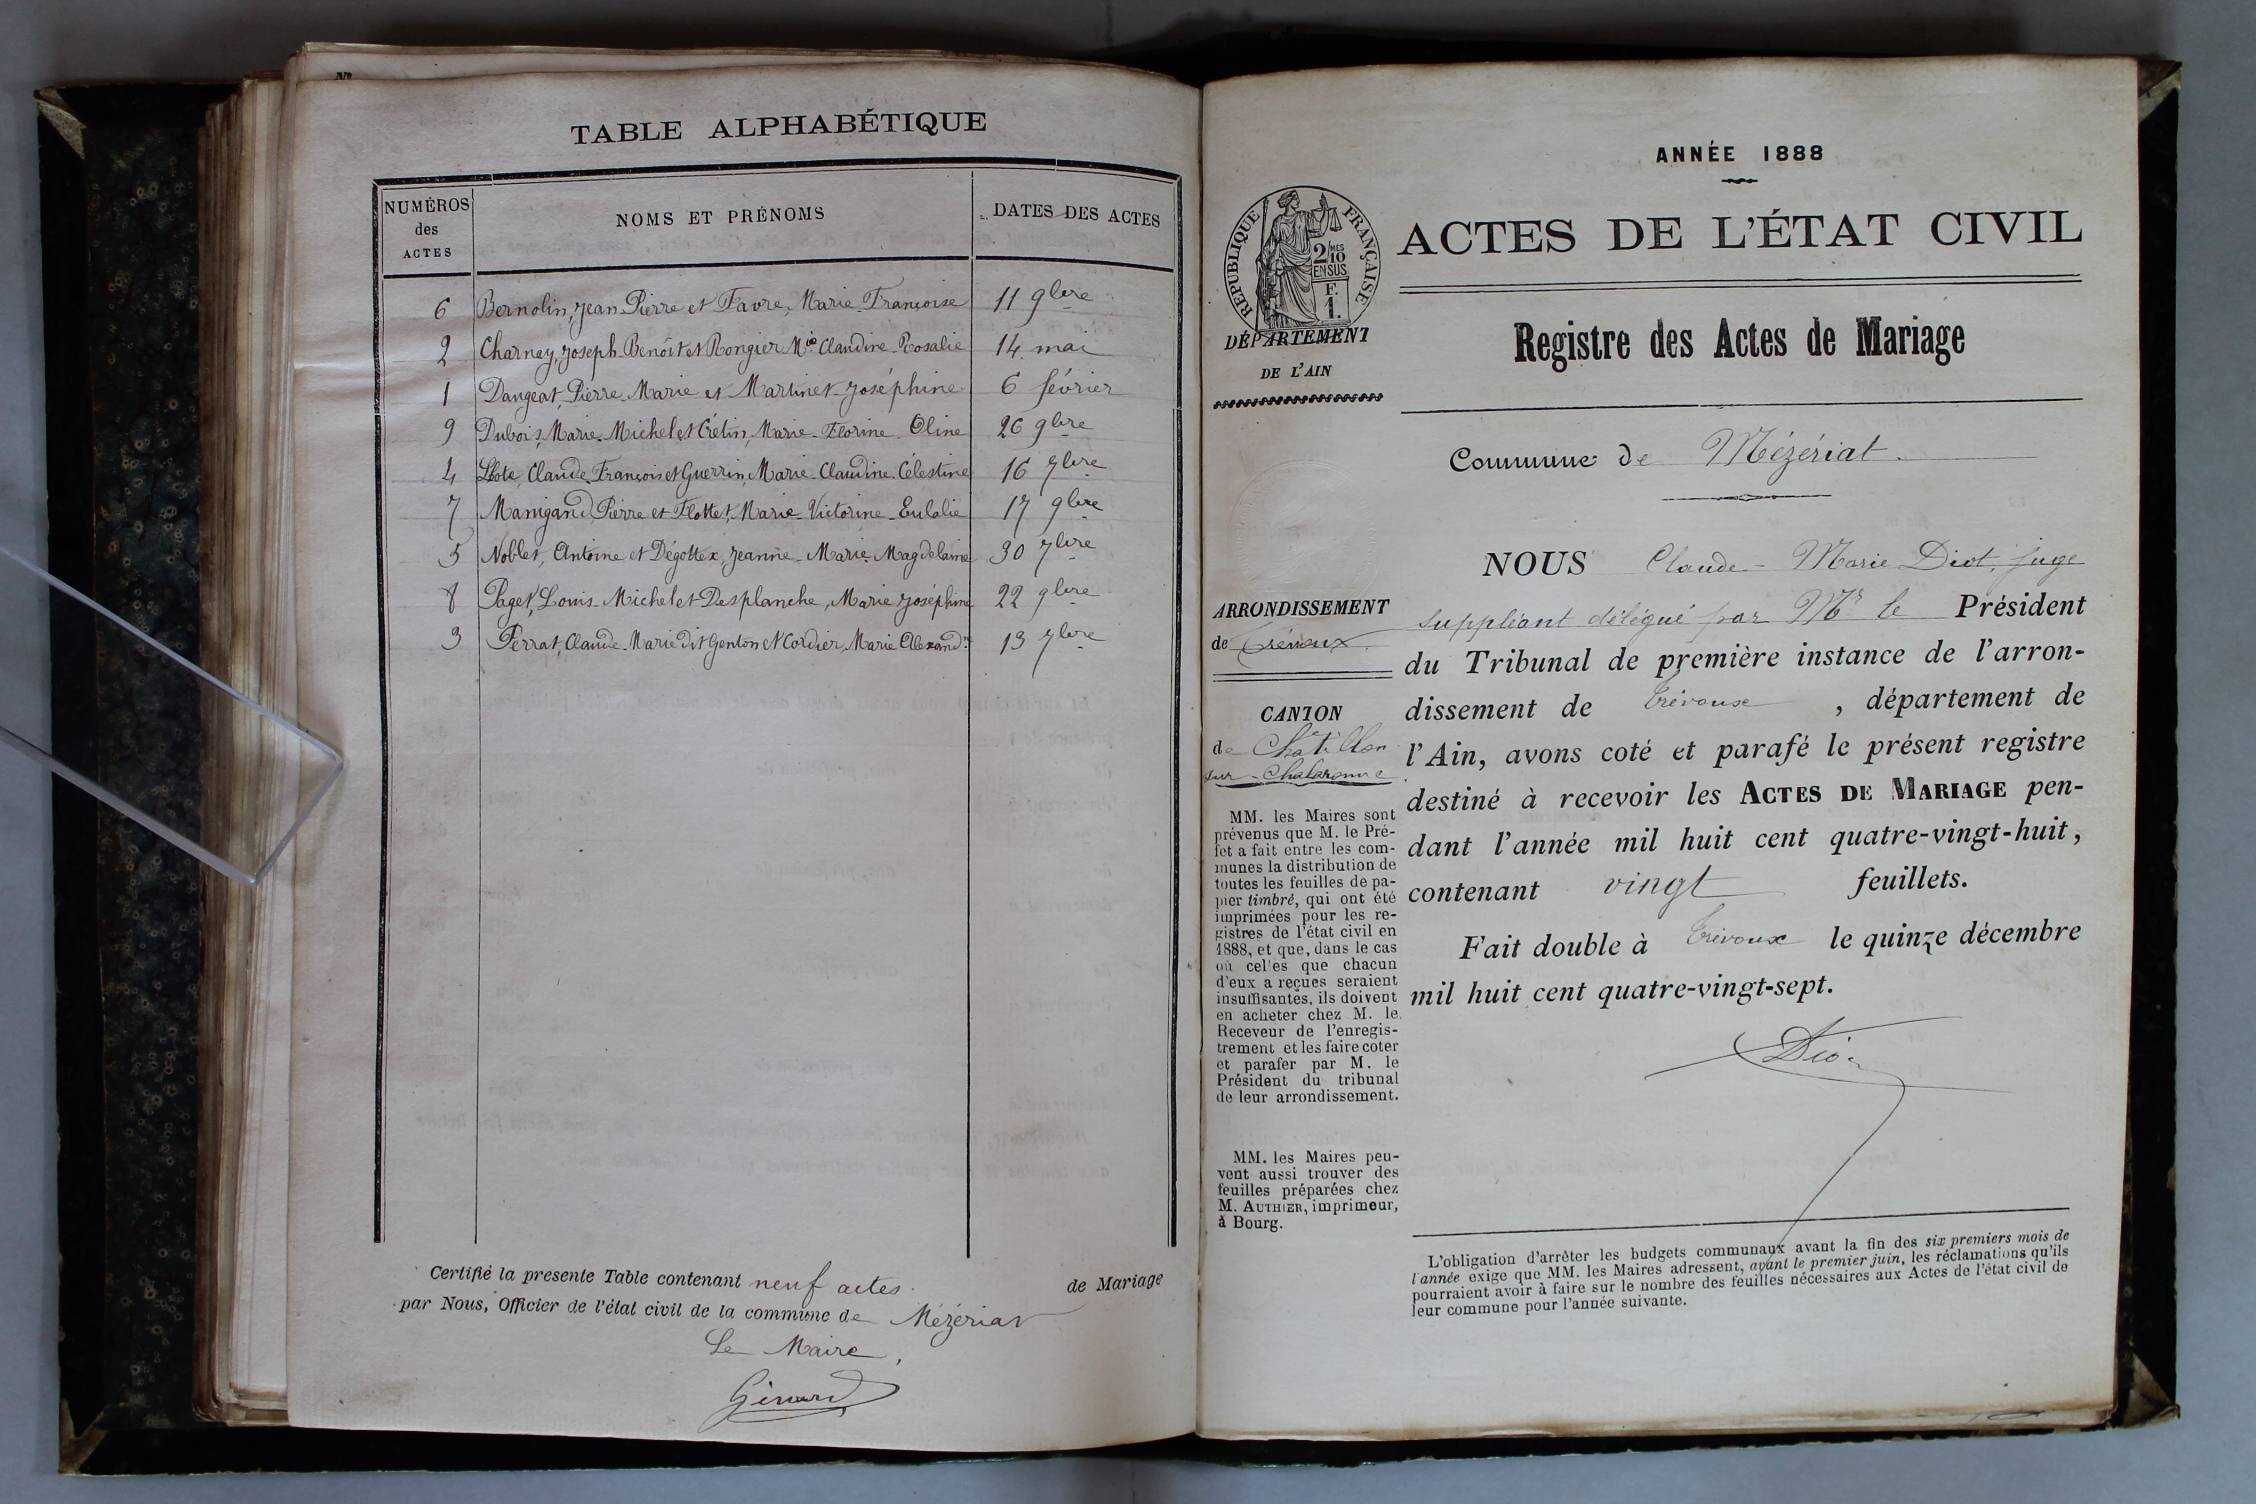 TABLE ALPHABÉTIQUE
NUMÉROS
des
ACTES
NOMS ET PRÉNOMS
DATES DES ACTES
6 Bernolin, Jean Pierre et Favre, Marie Françoise 11 9bre
2 Charnay, Joseph Benoît et Rongier Mie Claudine Rosalie 14 mai
1 Dangeat, Pierre Marie et Martinet Joséphine 6 février
9 Dubois, Marie Michel et Crétin, Marie Florine Oline 26 9bre
4 Claude François et Guerrin, Marie Claudine Célestine 16 7bre
7 Manigand Pierre et Flottet, Marie Victorine Eulalie 17 9bre
5 Noblet, Antoine et Dégottex, Jeanne Marie Magdelaine 30 7bre
8 Paget, Louis Michel et Desplanche, Marie Joséphine 22 9bre
3 Perrat, Claude Marie dit Genton et Cordier, Marie Alexandne 13 7bre
Certifié la presente Table contenant neuf actes. de Mariage
par Nous, Officier de l'état civil de la commune de Mézériat
Le Maire,
Girard
ANNÉE 1888
RÉPUBLIQUE FRANÇAISE
2/10 MES
EN SUS
F.
1.
DÉPARTEMENT
DE L'AIN
ACTES DE L'ÉTAT CIVIL
Registre des Actes de Mariage
Commune de Mézériat.
ARRONDISSEMENT
de Trévoux.
CANTON
de Châtillon
sur-Chalaronne
MM. les Maires sont
prévenus que M. le Pré-
fet a fait entre les com-
munes la distribution de
toutes les feuilles de pa-
pier timbré, qui ont été
imprimées pour les re-
gistres de l'état civil en
1888, et que, dans le cas
où celles que chacun
d'eux a reçues seraient
insuffisantes, ils doivent
en acheter chez M. le
Receveur de l'enregis-
trement et les faire coter
et parafer par M. le
Président du tribunal
de leur arrondissement.
MM. les Maires peu-
vent aussi trouver des
feuilles préparées chez
M. AUTHIER, imprimeur,
à Bourg.
NOUS Claude-Marie Diot, juge
suppléant délégué par Mr le Président
du Tribunal de première instance de l'arron-
dissement de Trévoux , département de
l'Ain, avons coté et parafé le présent registre
destiné à recevoir les ACTES DE MARIAGE pen-
dant l'année mil huit cent quatre-vingt-huit,
contenant vingt feuillets.
Fait double à Trévoux le quinze décembre
mil huit cent quatre-vingt-sept.
Diot
L'obligation d'arrêter les budgets communaux avant la fin des six premiers mois de
l'année exige que MM. les Maires adressent, avant le premier juin, les réclamations qu'ils
pourraient avoir à faire sur le nombre des feuilles nécessaires aux Actes de l'état civil de
leur commune pour l'année suivante.